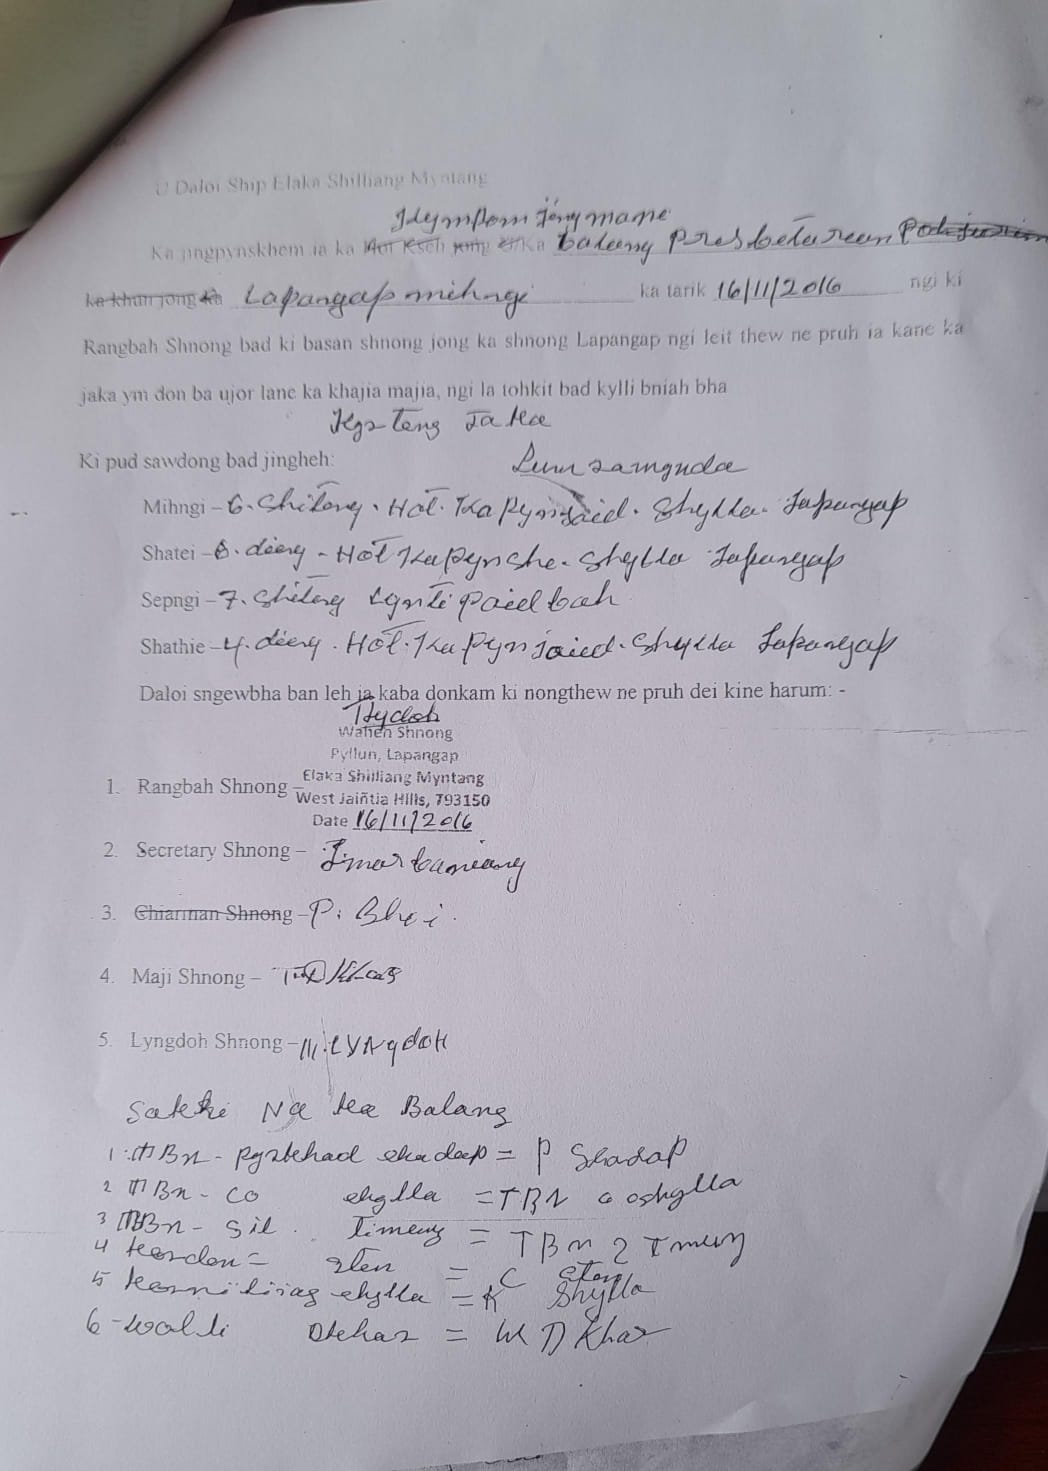 U Daloi Ship Elaka Shilliang Myntang
jong mane
Ka jingpynskhem ia ka Mot Kseh jong ka Balang Presbetarean
ka khun jong ka Lapangap mihngi ka tarik 16/11/2016 ngi ki
Rangbah Shnong bad ki basan shnong jong ka shnong Lapangap ngi leit thew ne pruh ia kane ka
jaka ym don ba ujor lane ka khajia majia, ngi la tohkit bad kylli bniah bha
Ki pud sawdong bad jingheh:
Mihngi – 6. Shiteng. Hot. Ka Pynjaid. Shylla. Lapangap
Shatei – 8. dieng – Hot Ka Pynshe. Shylla Lapangap
Sepngi – 7. Shiteng Lynti Paidbah
Shathie – 4. dieng. Hot. Ka Pynjaid. Shylla Lapangap
Daloi sngewbha ban leh ia kaba donkam ki nongthew ne pruh dei kine harum: -
Wahen Shnong
Pyllun, Lapangap
Elaka Shilliang Myntang
1. Rangbah Shnong –
West Jaiñtia Hills, 793150
Date 16/11/2016
2. Secretary Shnong –
3. Chiarman Shnong – P. Bhoi.
4. Maji Shnong –
5. Lyngdoh Shnong – M. Lyngdoh
Sakhi Na ka Balang
1. TBn - Pyrkhad shadap = P Shadap
2 TBn - CO shylla = TBN Co shylla
3 TBn - Sil. Timung = TBn 2 Tmung
4 Karden = sten = C sten
5 shylla = K Shylla
6 - Dkhar = W D Khar